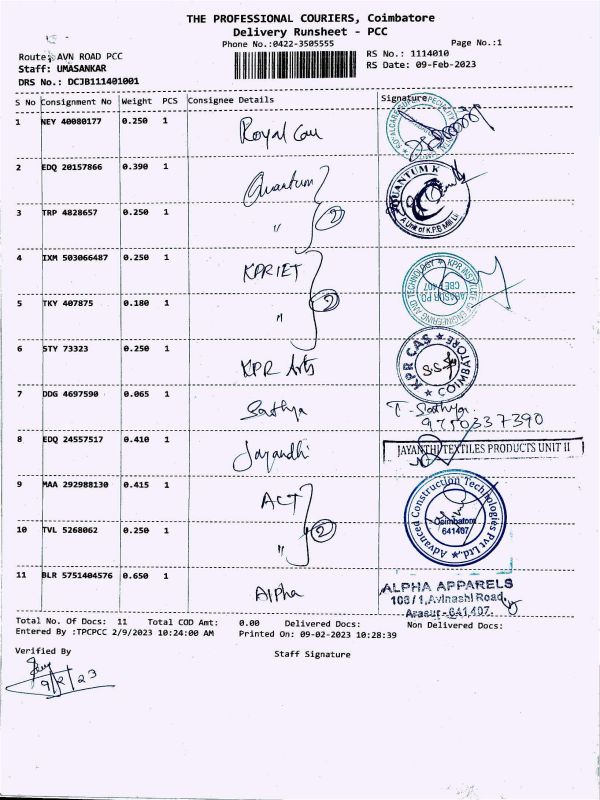 THE PROFESSIONAL COURIERS, Coimbatore
Delivery Runsheet - PCC
Phone No.:0422-3505555
Page No.:1
Route: AVN ROAD PCC
RS No.: 1114010
Staff: UMASANKAR
RS Date: 09-Feb-2023
DRS No.: DCJB111401001
S No Consignment No Weight PCS Consignee Details Signature
1 NEY 40080177 0.250 1 Royal Cau
2 EDQ 20157866 0.390 1 Quantum
QUANTUM K
A Unit of K.P.R Mill Lt
3 TRP 4828657 0.250 1 " 2
4 IXM 503066487 0.250 1 KPRIET
KPR INSTITUTE OF ENGINEERING AND TECHNOLOGY
ARASUR PO
CBE 407
5 TKY 407875 0.180 1 " 2
6 STY 73323 0.250 1 KPR Arts
KPR CAS ★ COIMBATORE ★
7 DDG 4697590 0.065 1 Sathya T-Sathya
9750337390
8 EDQ 24557517 0.410 1 Jayandhi
JAYANTHI TEXTILES PRODUCTS UNIT II
9 MAA 292988130 0.415 1 ACT
Advanced Construction Technologies Pvt Ltd. ★
Coimbatore
641407
10 TVL 5268062 0.250 1 " 2
11 BLR 5751404576 0.650 1 Alpha
ALPHA APPARELS
108/1, Avinashi Road,
Arasur - 641 407.
Total No. Of Docs: 11 Total COD Amt: 0.00 Delivered Docs: Non Delivered Docs:
Entered By :TPCPCC 2/9/2023 10:24:00 AM Printed On: 09-02-2023 10:28:39
Verified By
Staff Signature
9/2/23